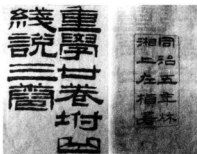 重學廿卷坿曲
綫說三卷
同治五年秌
湘上左楨署